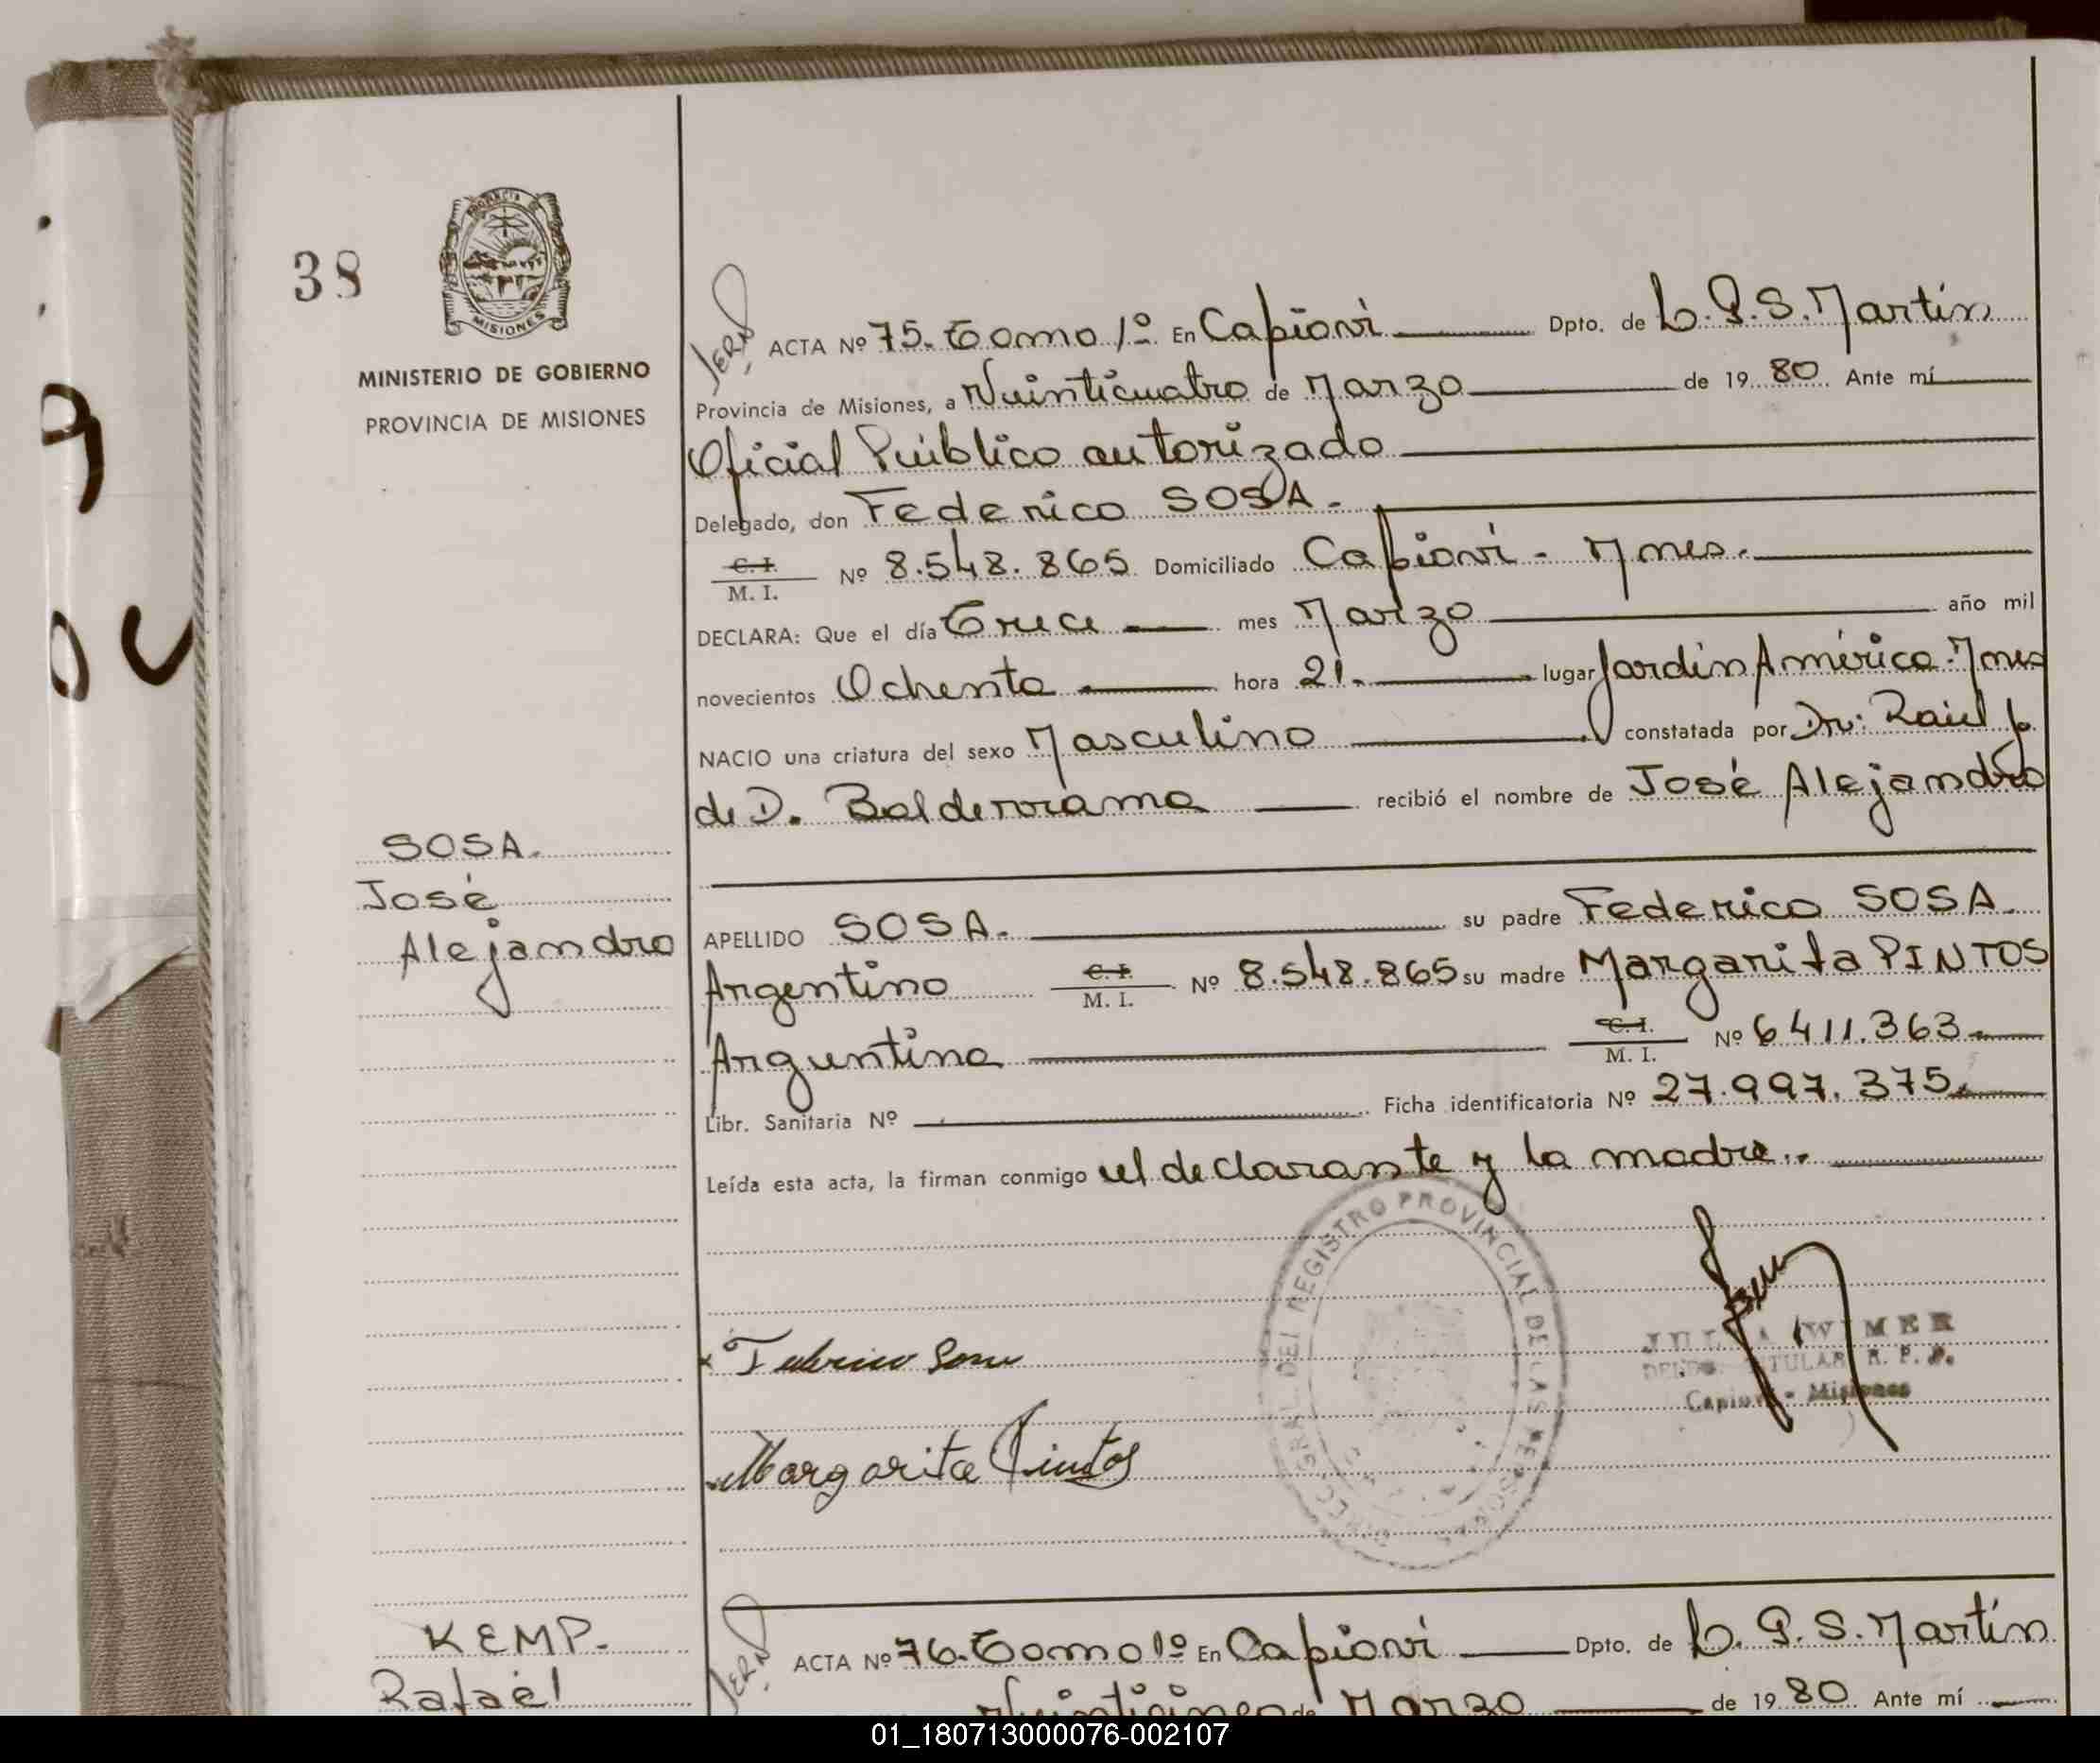 38
PROVINCIA DE
MISIONES
MINISTERIO DE GOBIERNO
PROVINCIA DE MISIONES
ACTA Nº 75. Tomo 1º En Capioví Dpto. de L. G. S. Martín
Provincia de Misiones, a Veinticuatro de Marzo de 1980 Ante mí
Oficial Público autorizado
Delegado, don Federico SOSA.
C. I.
M. I. Nº 8.548.865 Domiciliado Capioví - Mnes.
DECLARA: Que el día Trece mes Marzo año mil
novecientos Ochenta hora 21. lugar Jardín América. Mnes
NACIO una criatura del sexo Masculino constatada por Dr: Raúl
de D. Balderrama recibió el nombre de José Alejandro
SOSA.
José
Alejandro
APELLIDO SOSA. su padre Federico SOSA.
Argentino C. I. M. I. Nº 8.548.865 su madre Margarita PINTOS
Argentina C. I. M. I. Nº 6411.363
Libr. Sanitaria Nº Ficha identificatoria Nº 27.997.375.
Leída esta acta, la firman conmigo el declarante y la madre..
REGISTRO PROVINCIAL DE LAS PERSONAS
Federico Sosa
WIMER
TITULAR R. P. P.
Capioví - Misiones
Margarita Pintos
KEMP.
Rafael
ACTA Nº 76. Tomo 1º En Capioví Dpto. de L. G. S. Martín
Veinticinco de Marzo de 1980 Ante mí
01_180713000076-002107